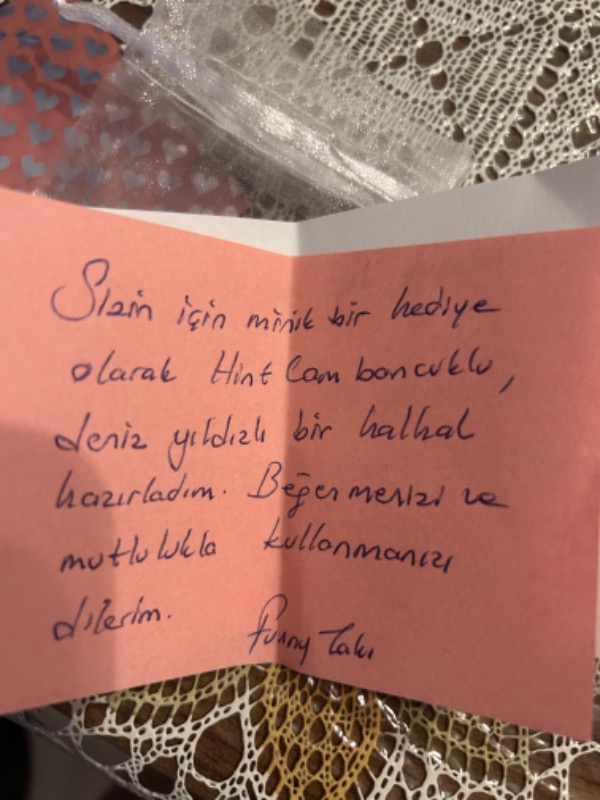 Sizin için minik bir hediye
olarak Hint Cam boncuklu,
deniz yıldızlı bir halhal
hazırladım. Beğenmenizi ve
mutlulukla kullanmanızı
dilerim.
Funny Takı